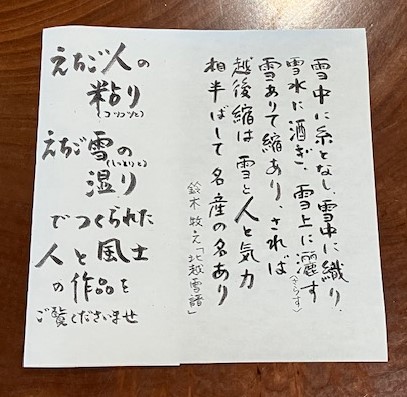 雪中に糸となし、雪中に織り、
雪水に洒ぎ、雪上に洒す
(さらす)
雪ありて縮あり、されば
越後縮は雪と人と気力
相半ばして名産の名あり
鈴木牧之「北越雪譜」
えちご人の
粘り
(コツコツと)
えちご雪の
(しっとりと)
湿り
でつくられた
人と風土
の作品を
ご覧くださいませ